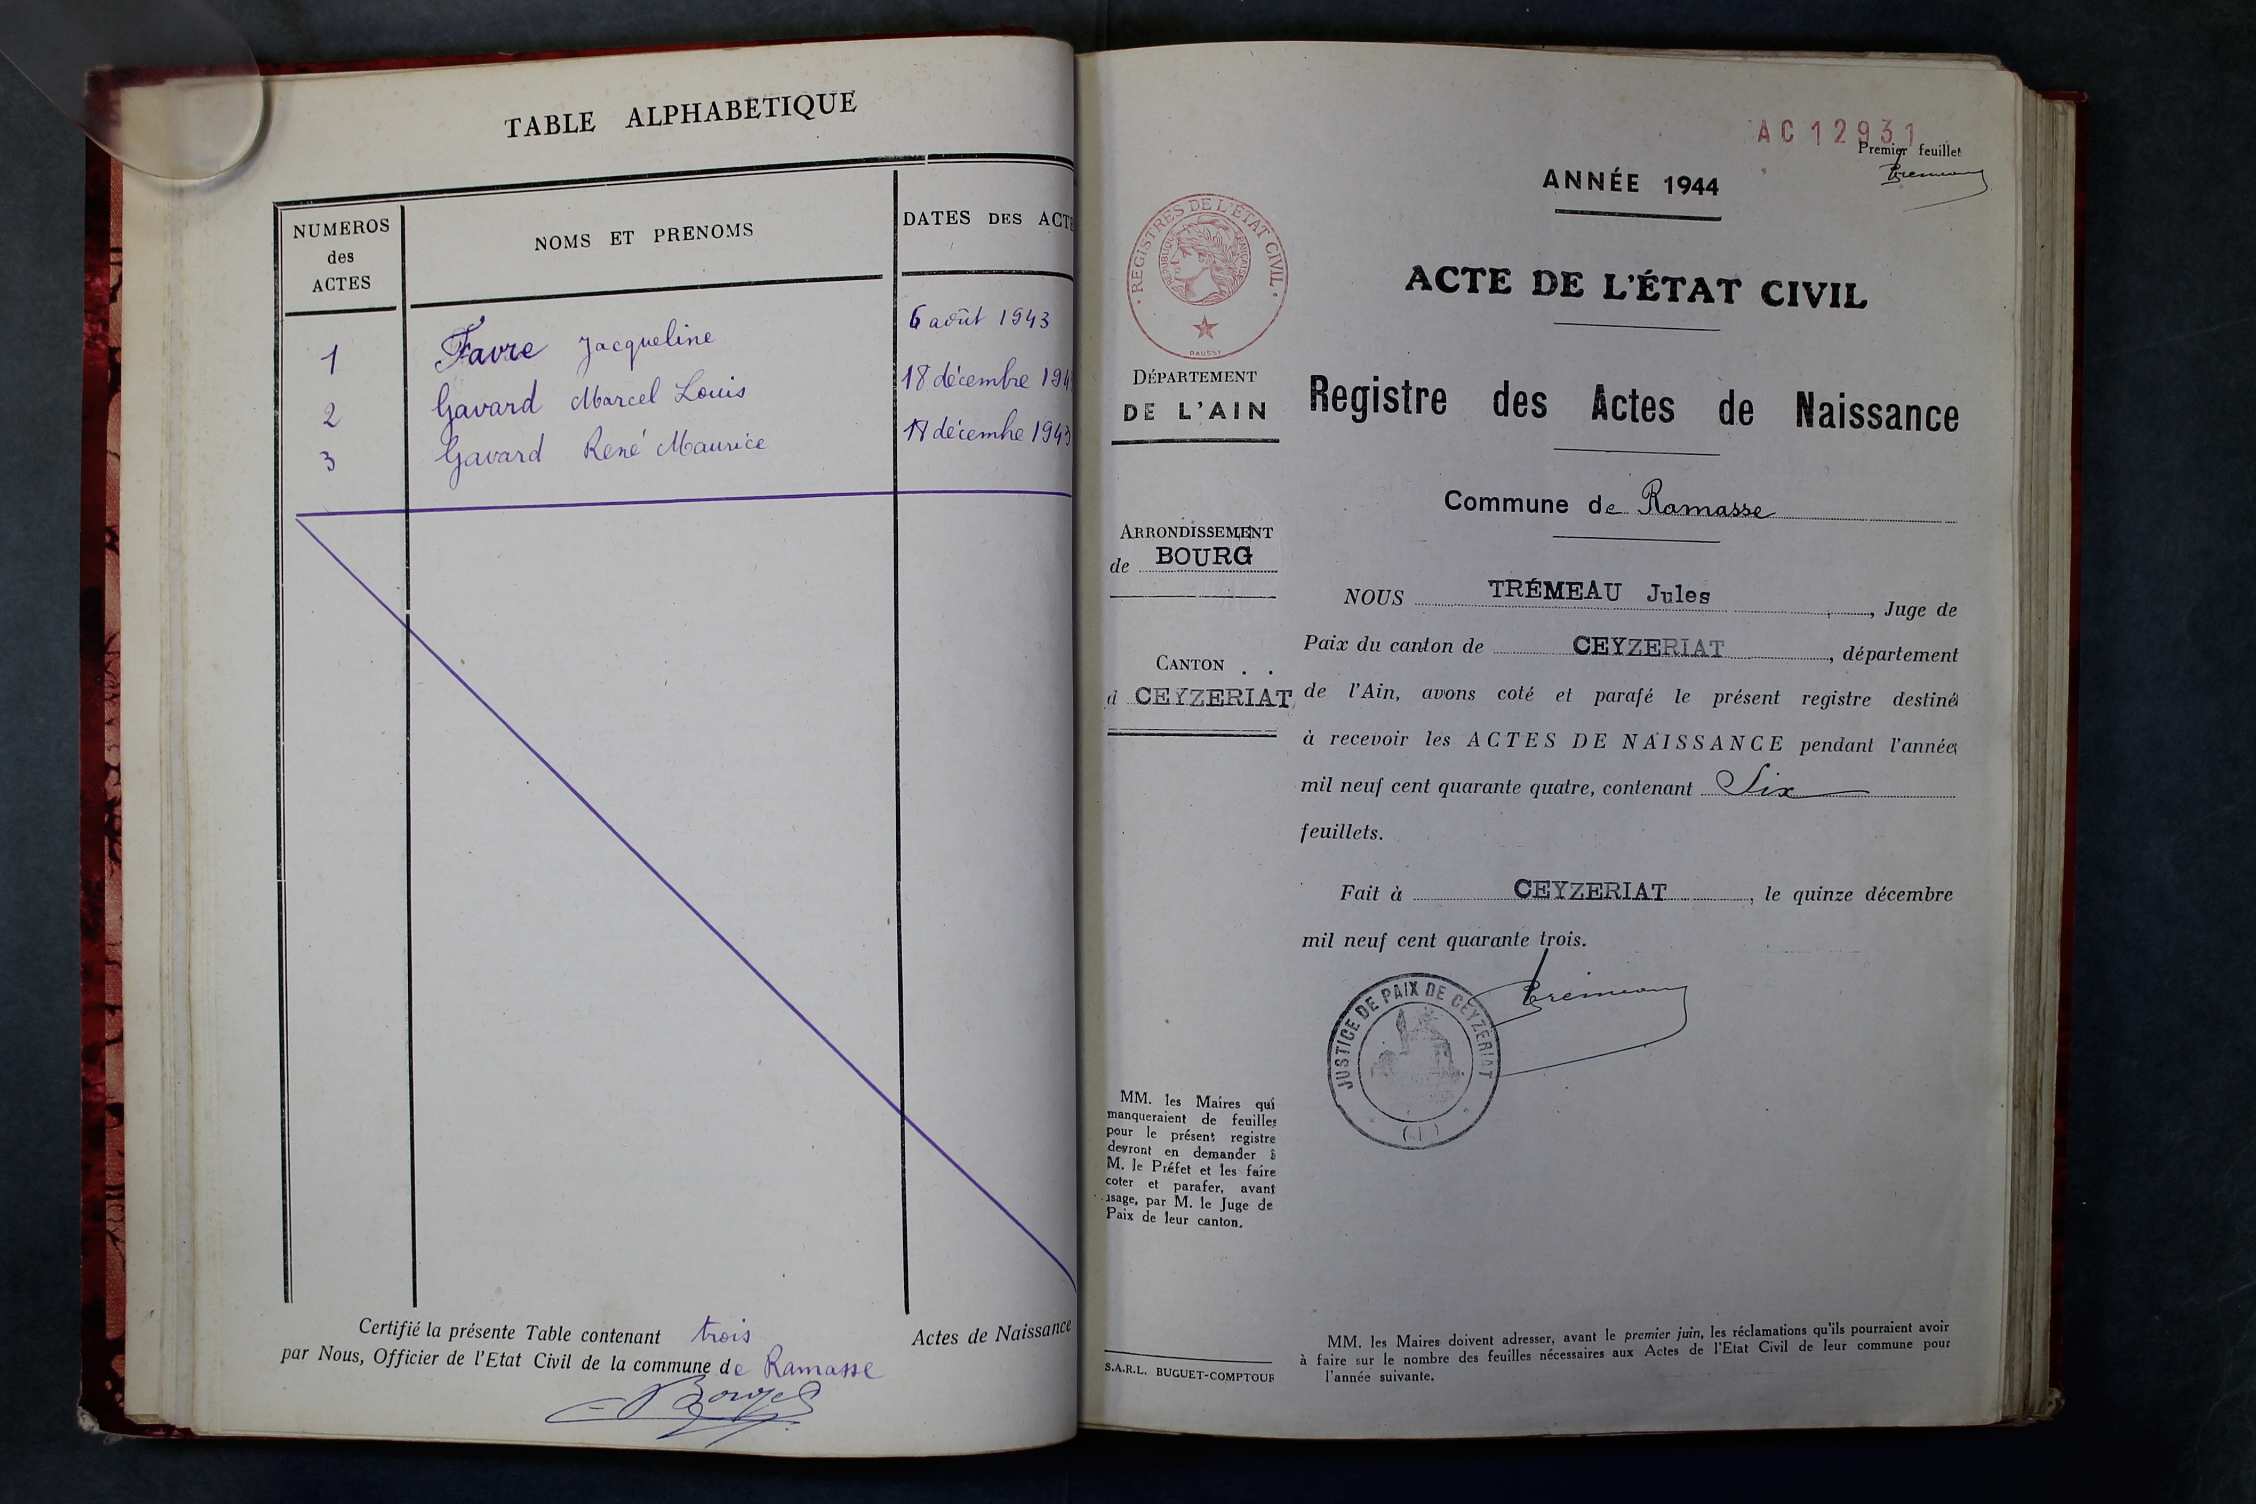 TABLE ALPHABETIQUE
NUMEROS
des
ACTES
NOMS ET PRENOMS
DATES DES ACTE
1 Favre Jacqueline 6 août 1943
2 Gavard Marcel Louis 18 décembre 194
3 Gavard René Maurice décembre 1943
Certifié la présente Table contenant trois Actes de Naissance
par Nous, Officier de l'Etat Civil de la commune de Ramasse
AC 12931
Premier feuillet
ANNÉE 1944
REGISTRES DE L'ÉTAT CIVIL
RÉPUBLIQUE FRANÇAISE
ACTE DE L'ÉTAT CIVIL
DÉPARTEMENT
DE L'AIN
Registre des Actes de Naissance
Commune de Ramasse
ARRONDISSEMENT
de BOURG
CANTON
à CEYZERIAT
NOUS TRÉMEAU Jules, Juge de
Paix du canton de CEYZERIAT, département
de l'Ain, avons coté et parafé le présent registre destiné
à recevoir les ACTES DE NAISSANCE pendant l'année
mil neuf cent quarante quatre, contenant Six
feuillets.
Fait à CEYZERIAT, le quinze décembre
mil neuf cent quarante trois.
JUSTICE DE PAIX DE CEYZERIAT
MM. les Maires qui
manqueraient de feuilles
pour le présent registre
devront en demander à
M. le Préfet et les faire
coter et parafer, avant
usage, par M. le Juge de
Paix de leur canton.
S.A.R.L. BUGUET-COMPTOUR
MM. les Maires doivent adresser, avant le premier juin, les réclamations qu'ils pourraient avoir
à faire sur le nombre des feuilles nécessaires aux Actes de l'Etat Civil de leur commune pour
l'année suivante.